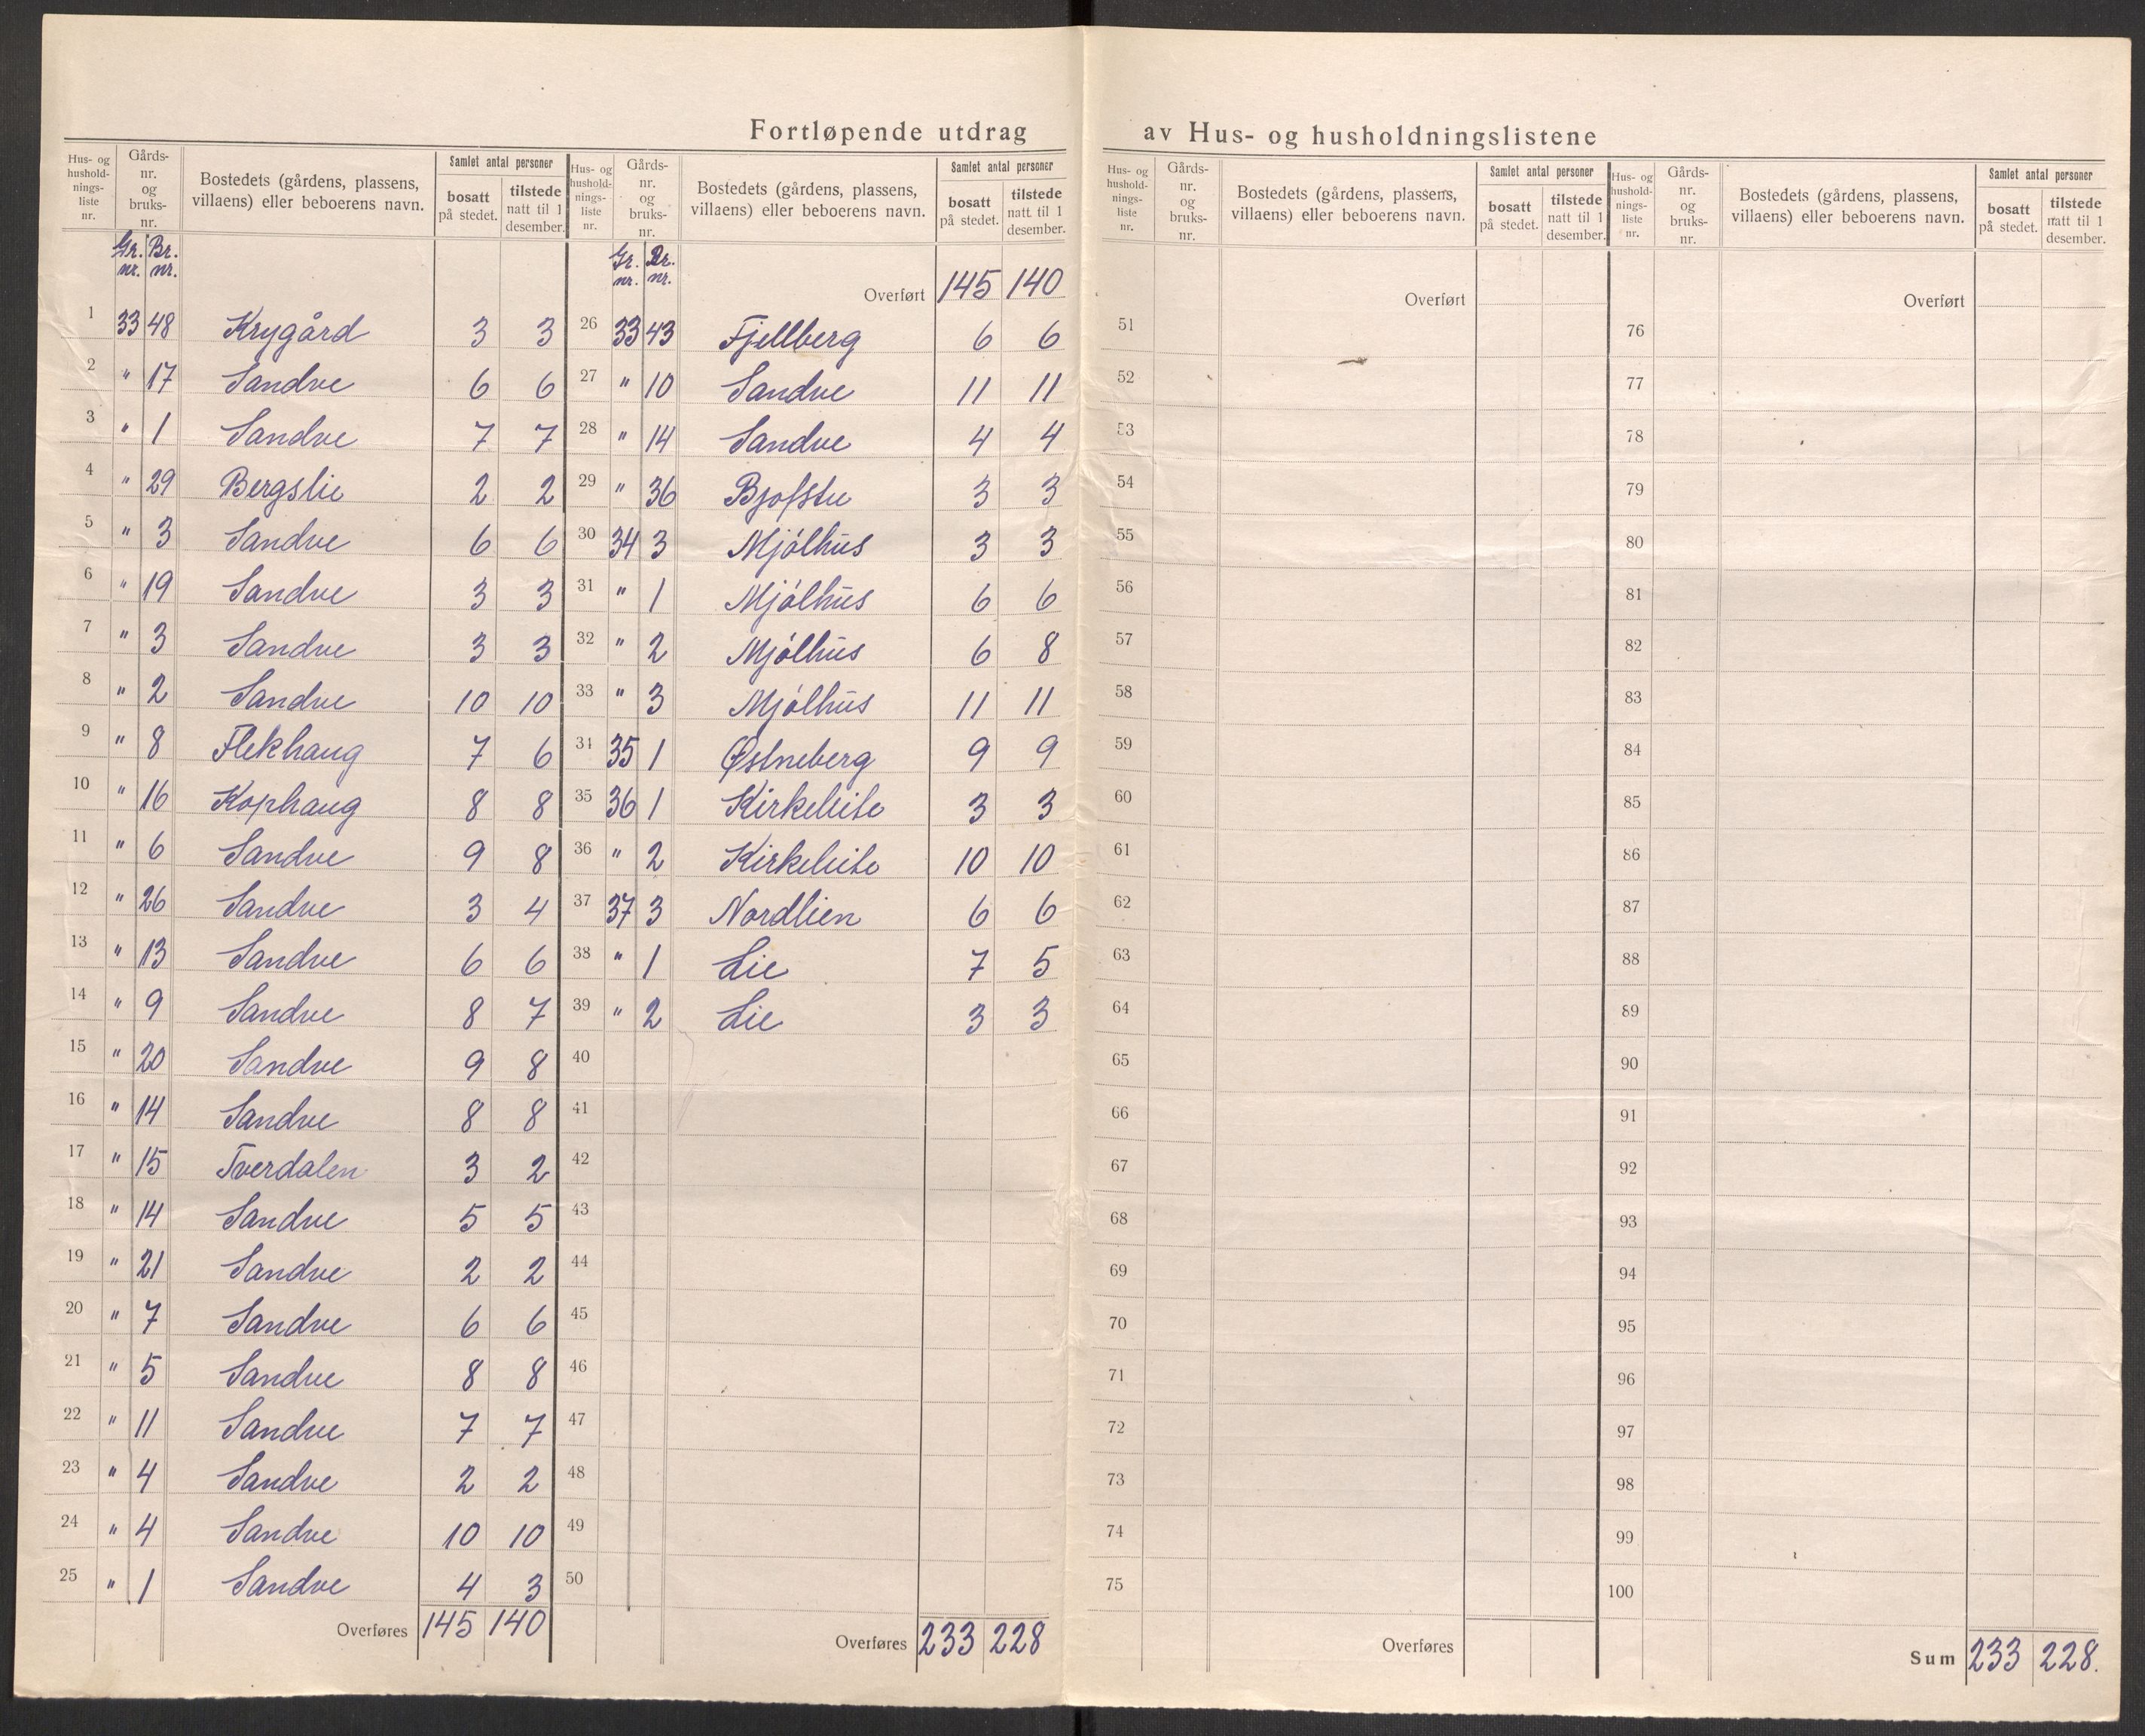 Fortløpende utdrag av Hus- og husholdningslistene
Hus- og husholdnings-liste nr. | Gårds-nr. og bruks-nr. | Bostedets (gårdens, plassens, villaens) eller beboerens navn. | Samlet antal personer bosatt på stedet. | tilstede natt til 1 desember.
Gr. nr. | Br. nr.
1 33 48 Krygård 3 3
2 " 17 Sandve 6 6
3 " 1 Sandve 7 7
4 " 29 Bergslie 2 2
5 " 3 Sandve 6 6
6 " 19 Sandve 3 3
7 " 3 Sandve 3 3
8 " 2 Sandve 10 10
9 " 8 Flekhaug 7 6
10 " 16 Kophaug 8 8
11 " 6 Sandve 9 8
12 " 26 Sandve 3 4
13 " 13 Sandve 6 6
14 " 9 Sandve 8 7
15 " 20 Sandve 9 8
16 " 14 Sandve 8 8
17 " 15 Tverdalen 3 2
18 " 14 Sandve 5 5
19 " 21 Sandve 2 2
20 " 7 Sandve 6 6
21 " 5 Sandve 8 8
22 " 11 Sandve 7 7
23 " 4 Sandve 2 2
24 " 4 Sandve 10 10
25 " 1 Sandve 4 3
Overføres 145 140
Hus- og husholdnings-liste nr. | Gårds-nr. og bruks-nr. | Bostedets (gårdens, plassens, villaens) eller beboerens navn. | Samlet antal personer bosatt på stedet. | tilstede natt til 1 desember.
Gr. nr. | Br. nr.
Overført 145 140
26 33 43 Fjellberg 6 6
27 " 10 Sandve 11 11
28 " 14 Sandve 4 4
29 " 36 3 3
30 34 3 Mjølhus 3 3
31 " 1 Mjølhus 6 6
32 " 2 Mjølhus 6 8
33 " 3 Mjølhus 11 11
34 35 1 Østneberg 9 9
35 36 1 Kirkeleite 3 3
36 " 2 Kirkeleite 10 10
37 37 3 Nordlien 6 6
38 " 1 Lie 7 5
39 " 2 Lie 3 3
40
41
42
43
44
45
46
47
48
49
50
Overføres 233 228
Hus- og husholdnings-liste nr. | Gårds-nr. og bruks-nr. | Bostedets (gårdens, plassens, villaens) eller beboerens navn. | Samlet antal personer bosatt på stedet. | tilstede natt til 1 desember.
Overført
51
52
53
54
55
56
57
58
59
60
61
62
63
64
65
66
67
68
69
70
71
72
73
74
75
Overføres
Hus- og husholdnings-liste nr. | Gårds-nr. og bruks-nr. | Bostedets (gårdens, plassens, villaens) eller beboerens navn. | Samlet antal personer bosatt på stedet. | tilstede natt til 1 desember.
Overført
76
77
78
79
80
81
82
83
84
85
86
87
88
89
90
91
92
93
94
95
96
97
98
99
100
Sum 233 228.